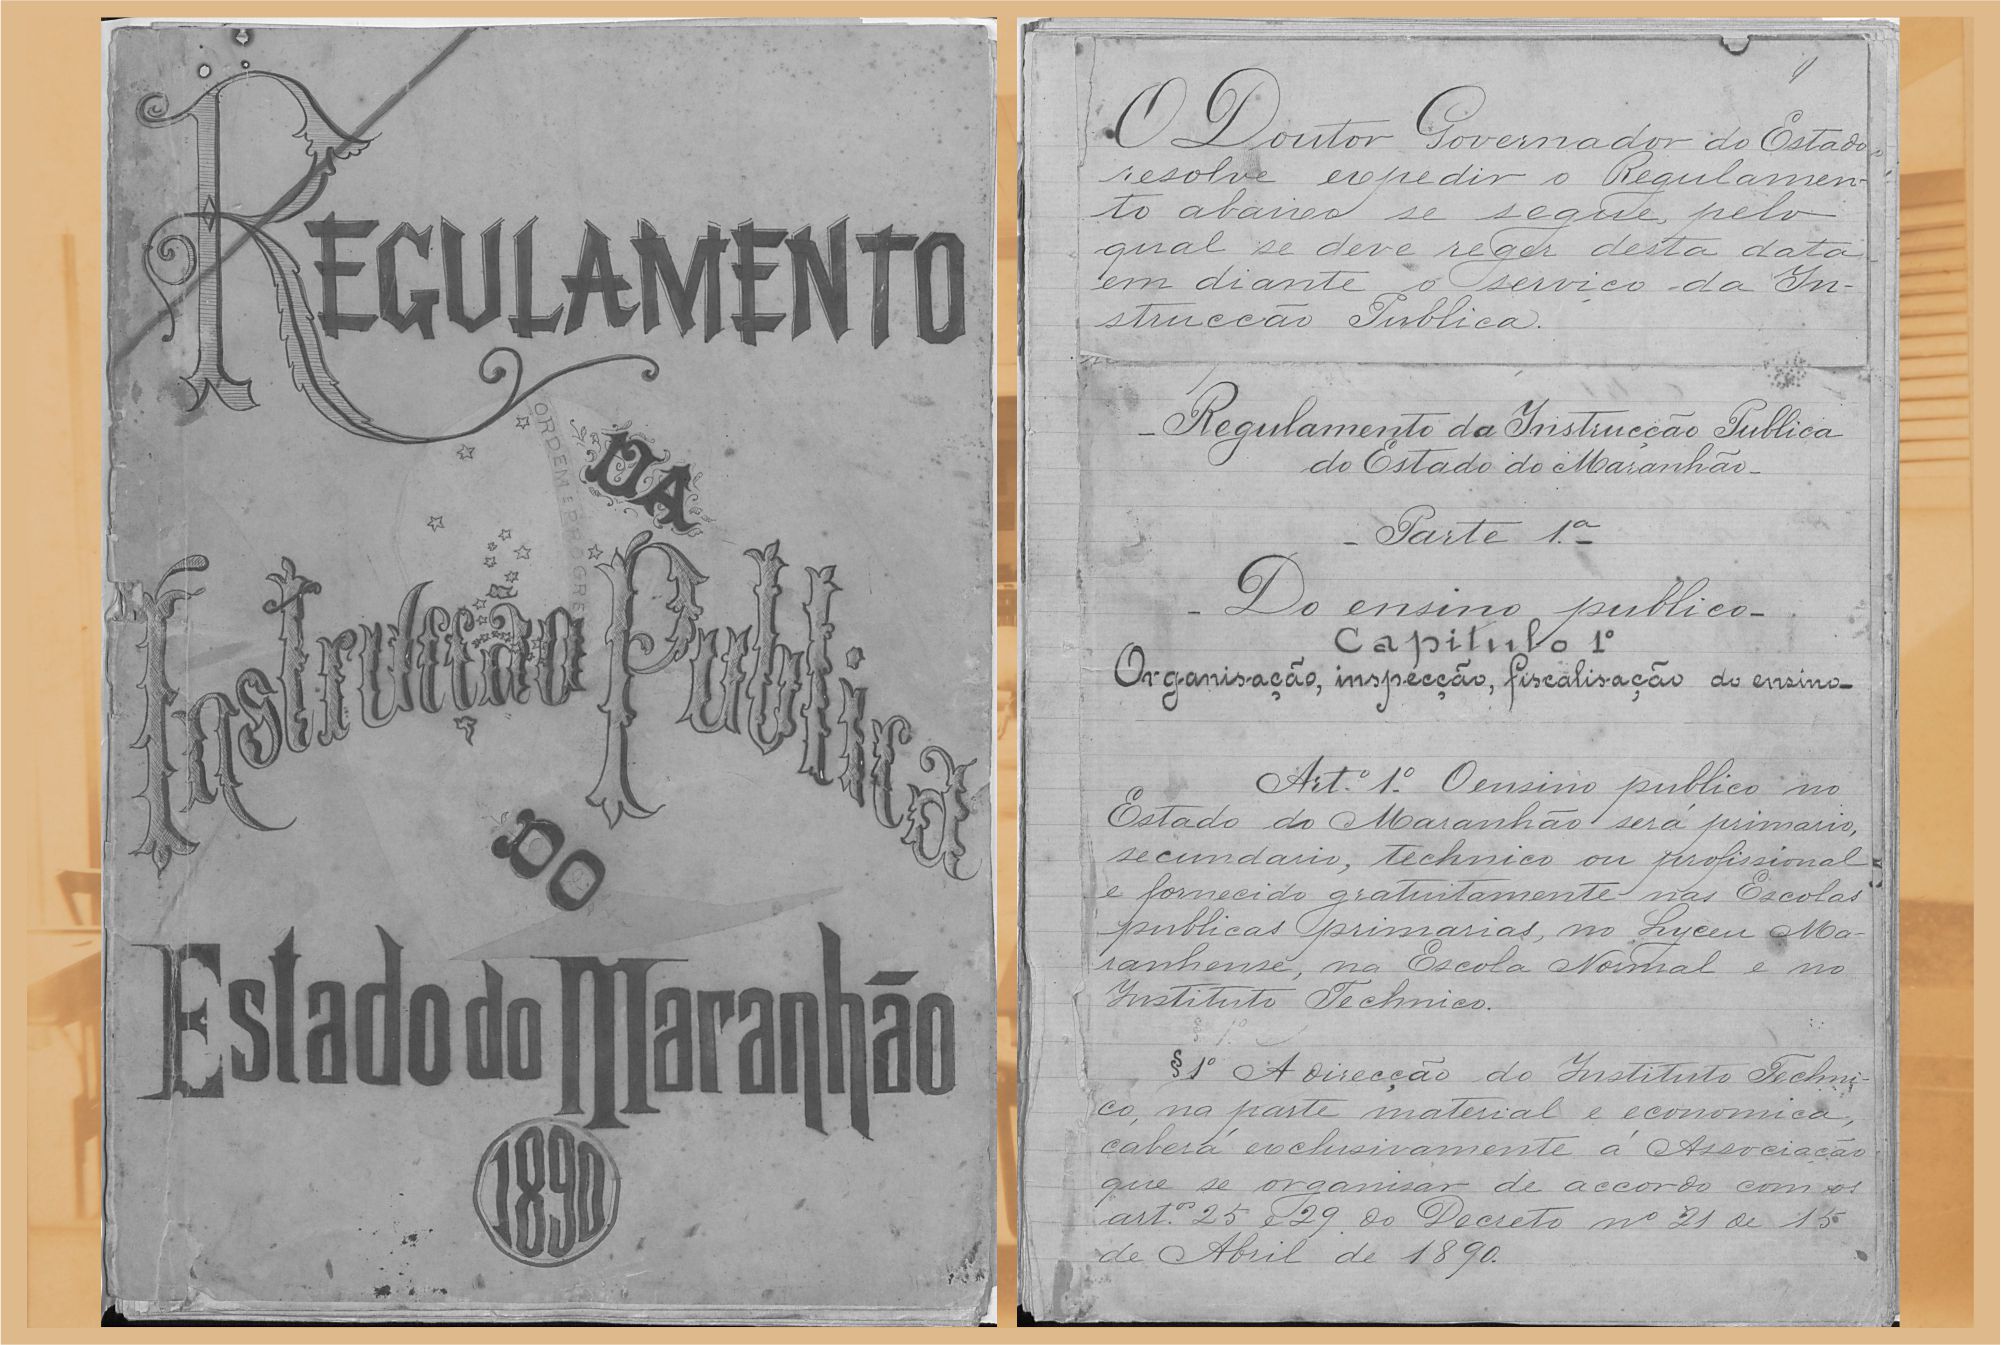 REGULAMENTO
DA
ORDEM E PROGRES
Instrucção Publica
DO
Estado do Maranhão
1890
O Doutor Governador do Estado
resolve expedir o Regulamen-
to abaixo se segue, pelo
qual se deve reger desta data
em diante o serviço da In-
strucção Publica.
- Regulamento da Instrucção Publica
do Estado do Maranhão -
- Parte 1.a -
- Do ensino publico -
Capitulo 1º
Organisação, inspecção, fiscalisação do ensino -
Art.º 1.º O ensino publico no
Estado do Maranhão será primario,
secundario, technico ou profissional
e fornecido gratuitamente nas Escolas
publicas primarias, no Lyceu Ma-
ranhense, na Escola Normal e no
Instituto Technico.
§ 1º A direcção do Instituto Techni-
co, na parte material e economica,
caberá exclusivamente á Associação
que se organisar de accordo com os
art.os 25 e 29 do Decreto nº 21 de 15
de Abril de 1890.